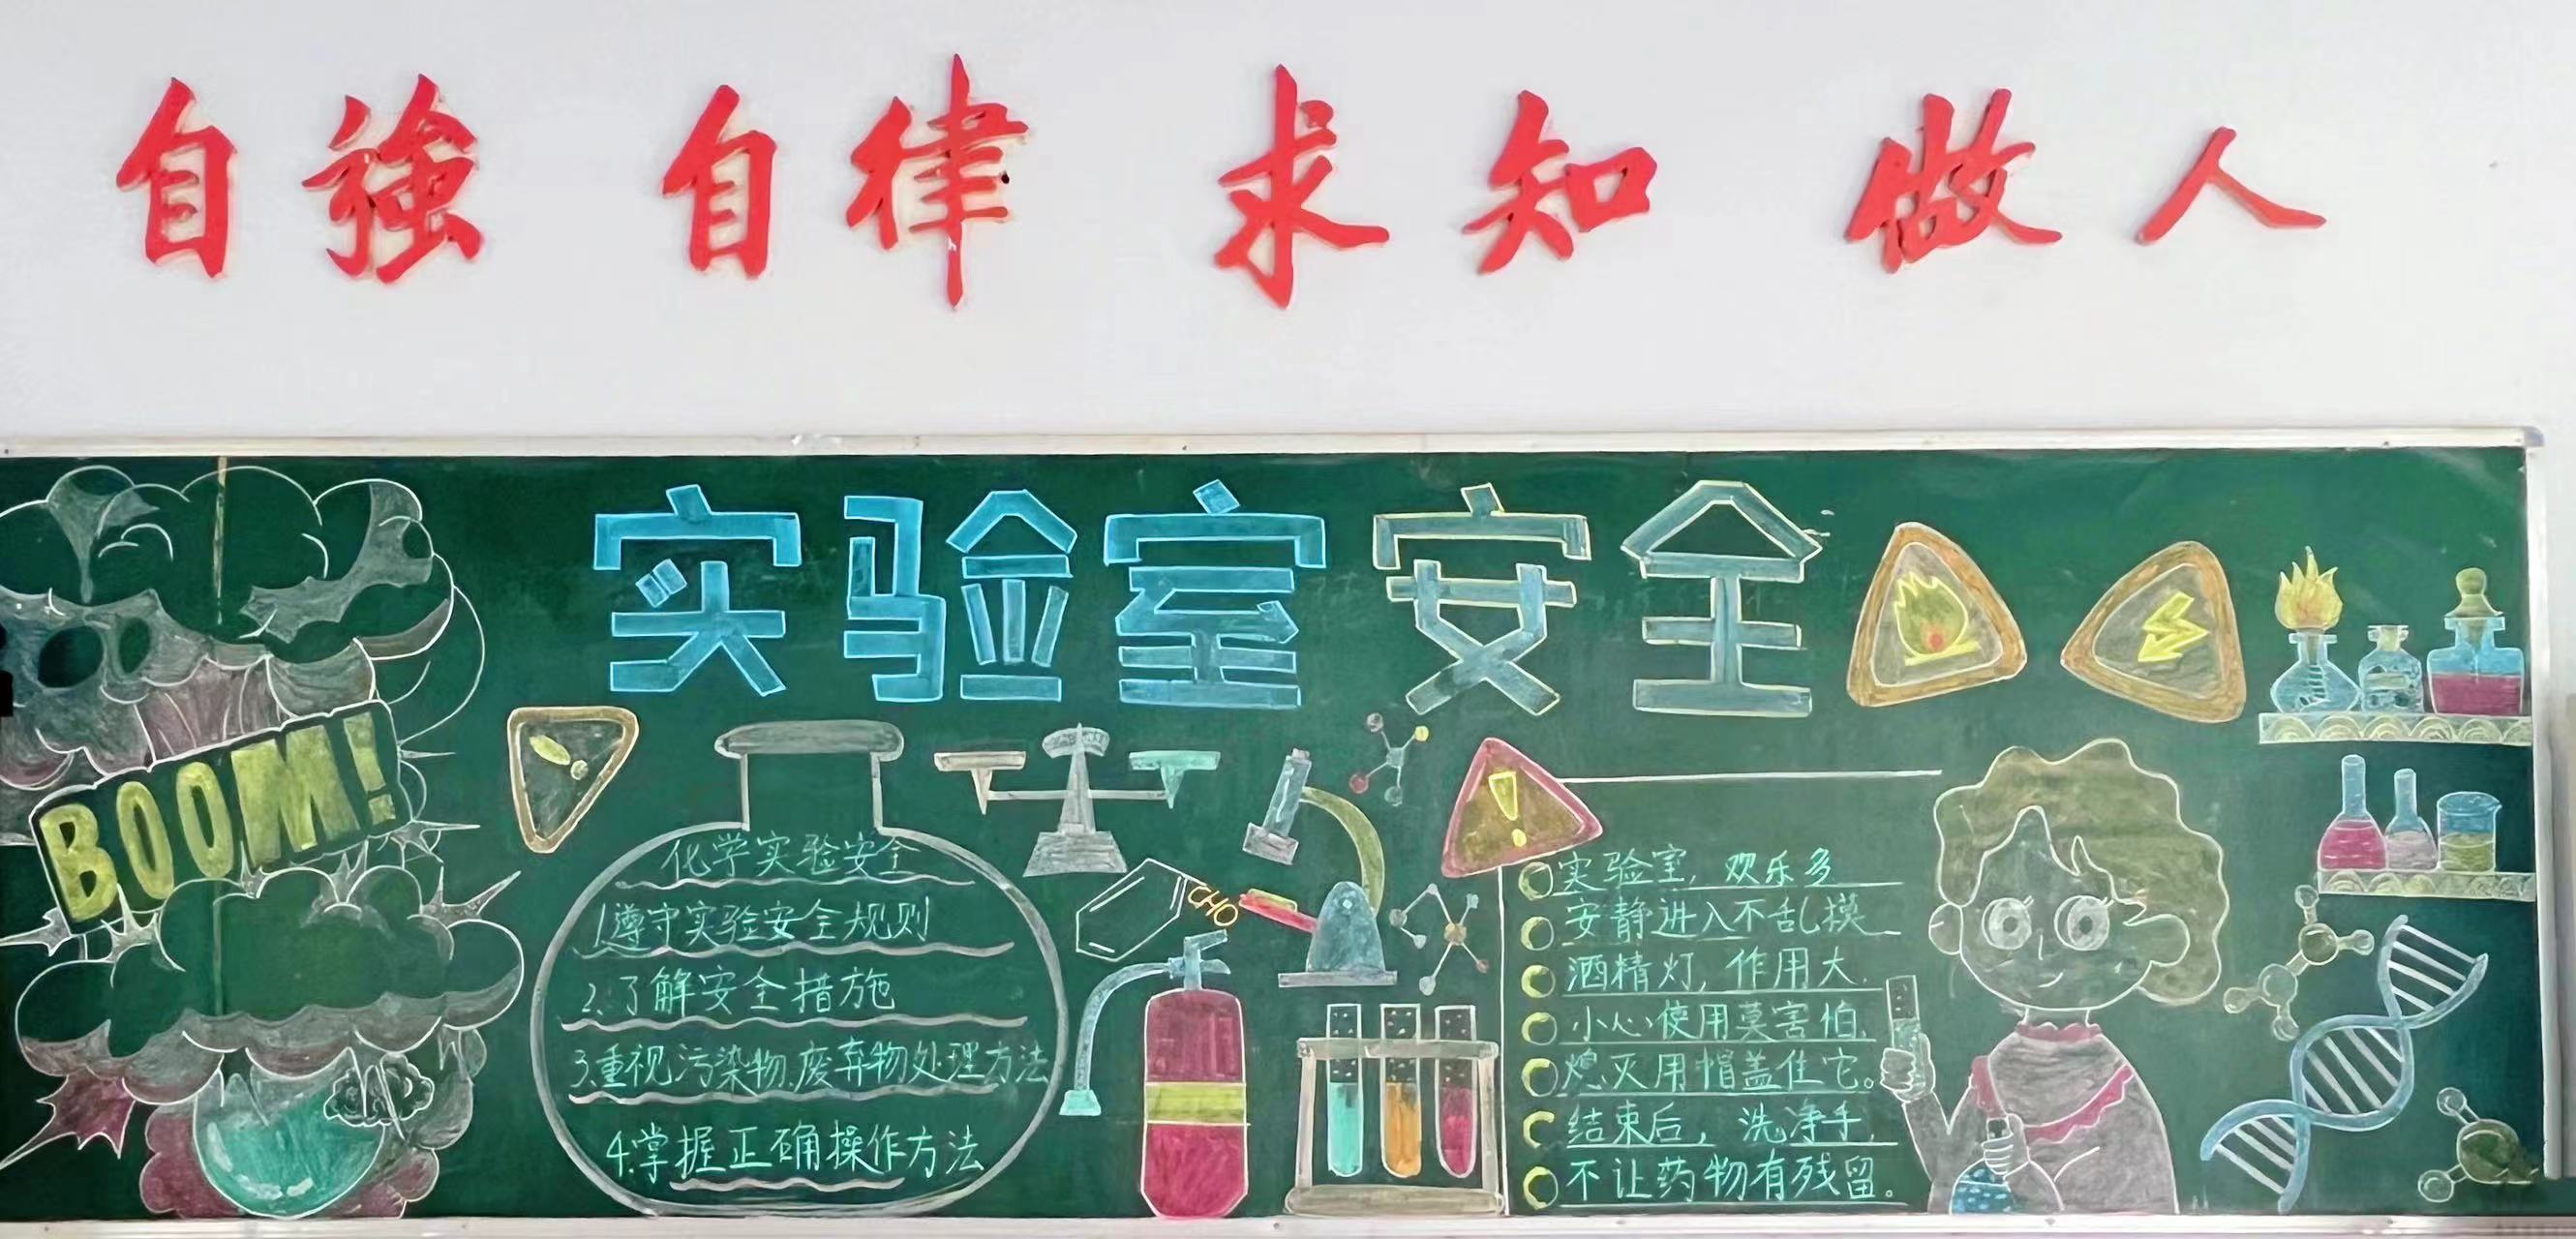 自強 自律 求知 做人
实验室安全
BOOM!
化学实验安全
1.遵守实验安全规则
2.了解安全措施
3.重视污染物.废弃物处理方法
4.掌握正确操作方法
CHO
实验室,欢乐多
安静进入不乱摸
酒精灯,作用大.
小心使用莫害怕.
熄灭用帽盖住它。
结束后,洗净手.
不让药物有残留。